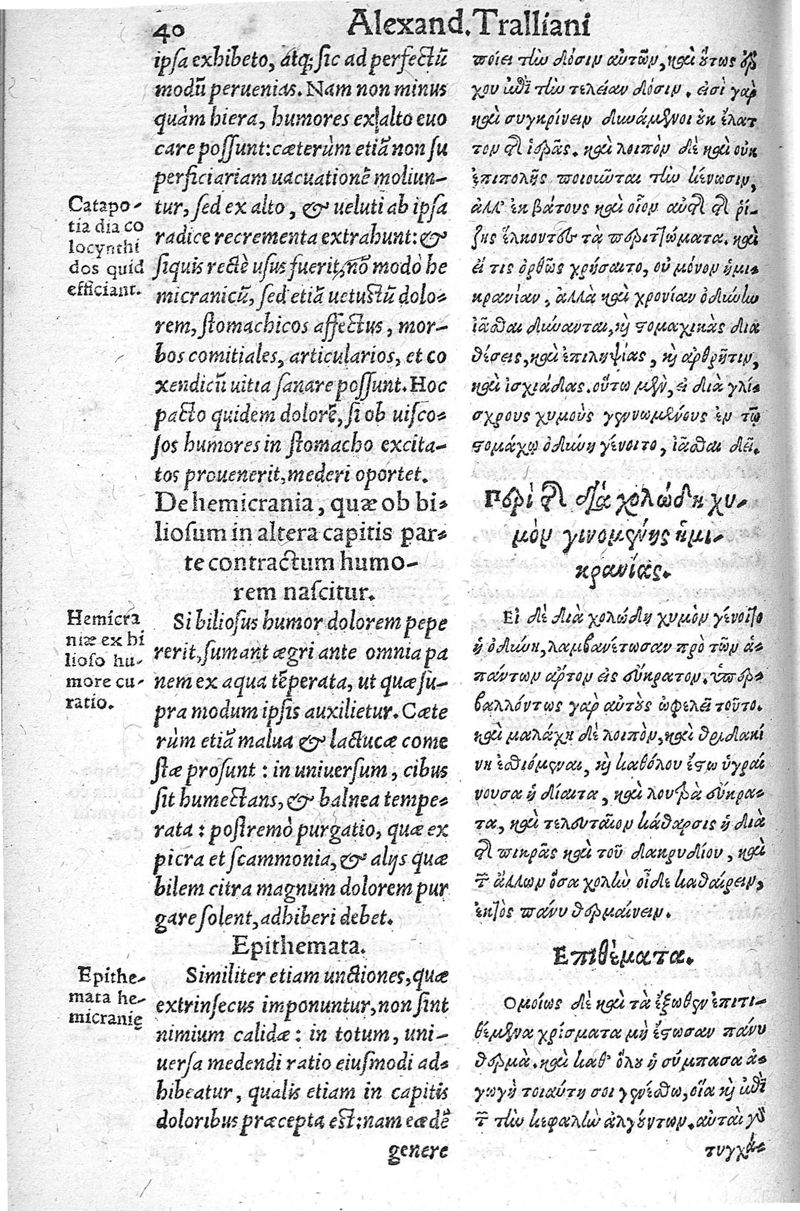 40
Alexand. Tralliani
ipsa exhibeto, atq; sic ad perfectū
modū peruenias. Nam non minus
quàm hiera, humores ex alto euo
care possunt: cæterùm etiā non su
perficiariam uacuationē moliun-
tur, sed ex alto, & ueluti ab ipsa
radice recrementa extrahunt: &
siquis rectè usus fuerit, nō modò he
micranicū, sed etiā uetustū dolo-
rem, stomachicos affectus, mor-
bos comitiales, articularios, et co
xendicū uitia sanare possunt. Hoc
pacto quidem dolorē, si ob uisco-
sos humores in stomacho excita-
tos prouenerit, mederi oportet.
De hemicrania, quæ ob bi-
liosum in altera capitis par-
te contractum humo-
rem nascitur.
Si biliosus humor dolorem pepe
rerit, sumant ægri ante omnia pa
nem ex aqua tēperata, ut quæ su-
pra modum ipsis auxilietur. Cæte
rùm etiā malua & lactucæ come
stæ prosunt: in uniuersum, cibus
sit humectans, & balnea tempe-
rata: postremò purgatio, quæ ex
picra et scammonia, & alijs quæ
bilem citra magnum dolorem pur
gare solent, adhiberi debet.
Epithemata.
Similiter etiam unctiones, quæ
extrinsecus imponuntur, non sint
nimium calidæ: in totum, uni-
uersa medendi ratio eiusmodi ad-
hibeatur, qualis etiam in capitis
doloribus præcepta est: nam eædē
genere
Catapo-
tia dia co
locynthi
dos quid
efficiant.
Hemicra
niæ ex bi
lioso hu-
more cu-
ratio.
Epithe-
mata he-
micranię
ποίει τὴν δόσιν αὐτῶν, καὶ οὕτως ἔρ
χου ἐπὶ τὴν τελείαν δόσιν. εἰσὶ γὰρ
καὶ συγκρίνειν δυνάμενοι οὐκ ἔλατ
τον τῆς ἱερᾶς. καὶ λοιπὸν δὲ καὶ οὐκ
ἐπιπολῆς ποιοῦνται τὴν κένωσιν,
ἀλλ' ἐκ βάτους καὶ οἷον αὐτῆς τῆς ῥί-
ζης ἕλκοντες τὰ περιττώματα. καὶ
εἴ τις ὀρθῶς χρήσαιτο, οὐ μόνον ἡμι-
κρανίαν, ἀλλὰ καὶ χρονίαν ὀδύνην
ἰᾶσθαι δύνανται, καὶ στομαχικὰς δια
θέσεις, καὶ ἐπιληψίας, καὶ ἀρθρῆτιν,
καὶ ἰσχιάδας. οὕτω μὲν, εἰ διὰ γλί-
σχρους χυμοὺς γεννωμένους ἐν τῷ
στομάχῳ ὀδύνη γένοιτο, ἰᾶσθαι δεῖ.
Περὶ τῆς διὰ χολώδη χυ-
μὸν γινομένης ἡμι-
κρανίας.
Εἰ δὲ διὰ χολώδη χυμὸν γένοιτο
ἡ ὀδύνη, λαμβανέτωσαν πρὸ τῶν ἁ-
πάντων ἄρτον εἰς εὔκρατον. ὑπερ-
βαλλόντως γὰρ αὐτοὺς ὠφελεῖ τοῦτο.
καὶ μαλάχη δὲ λοιπὸν, καὶ θριδακί
νη ἐσθιόμεναι, καὶ καθόλου ἔστω ὑγραί
νουσα ἡ δίαιτα, καὶ λουτρὰ εὔκρα-
τα, καὶ τελευταῖον κάθαρσις ἡ διὰ
τῆς πικρᾶς καὶ τοῦ δακρυδίου, καὶ
τῶν ἄλλων ὅσα χολὴν οἶδε καθαίρειν,
ἐκτὸς πάνυ θερμαίνειν.
Ἐπιθέματα.
Ὁμοίως δὲ καὶ τὰ ἔξωθεν ἐπιτι-
θέμενα χρίσματα μὴ ἔστωσαν πάνυ
θερμά. καὶ καθ' ὅλου ἡ σύμπασα ἀ-
γωγὴ τοιαύτη σοι γενέσθω, οἵα καὶ ἐπὶ
τῶν τὴν κεφαλὴν ἀλγούντων. αὗται γὰρ
τυγχά-